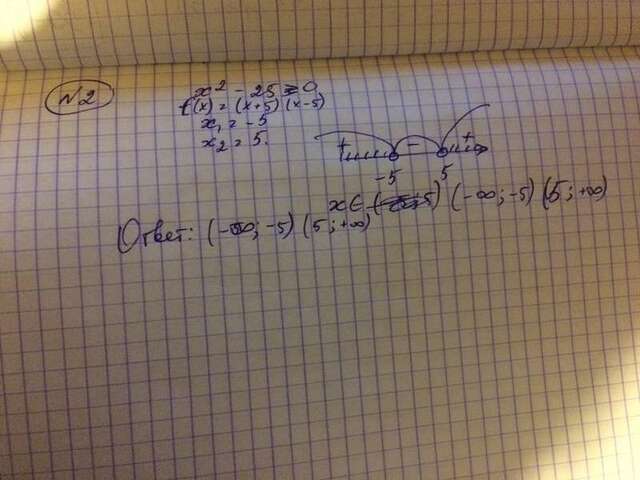 №2
x² - 25 ≥ 0
f(x) = (x+5)(x-5)
x₁ = -5
x₂ = 5.
+ - +
-5 5
x ∈ (-∞; -5) (5; +∞)
Ответ: (-∞; -5) (5; +∞)